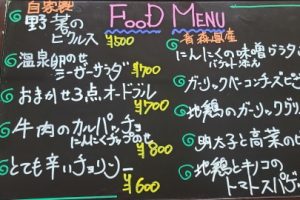 FOOD MENU
自家製
野菜の
ピクルス ¥500
温泉卵のせ
シーザーサラダ ¥700
おまかせ3点オードブル
¥700
牛肉のカルパッチョ
にんにくチップのせ ¥800
とても辛いチョリソー
¥600
青森県産
にんにくの味噌グラタ
バケット添え
ガーリックベーコンチーズピ
地鶏のガーリックグリ
明太子と高菜のピ
地鶏とキノコの
トマトスパゲ